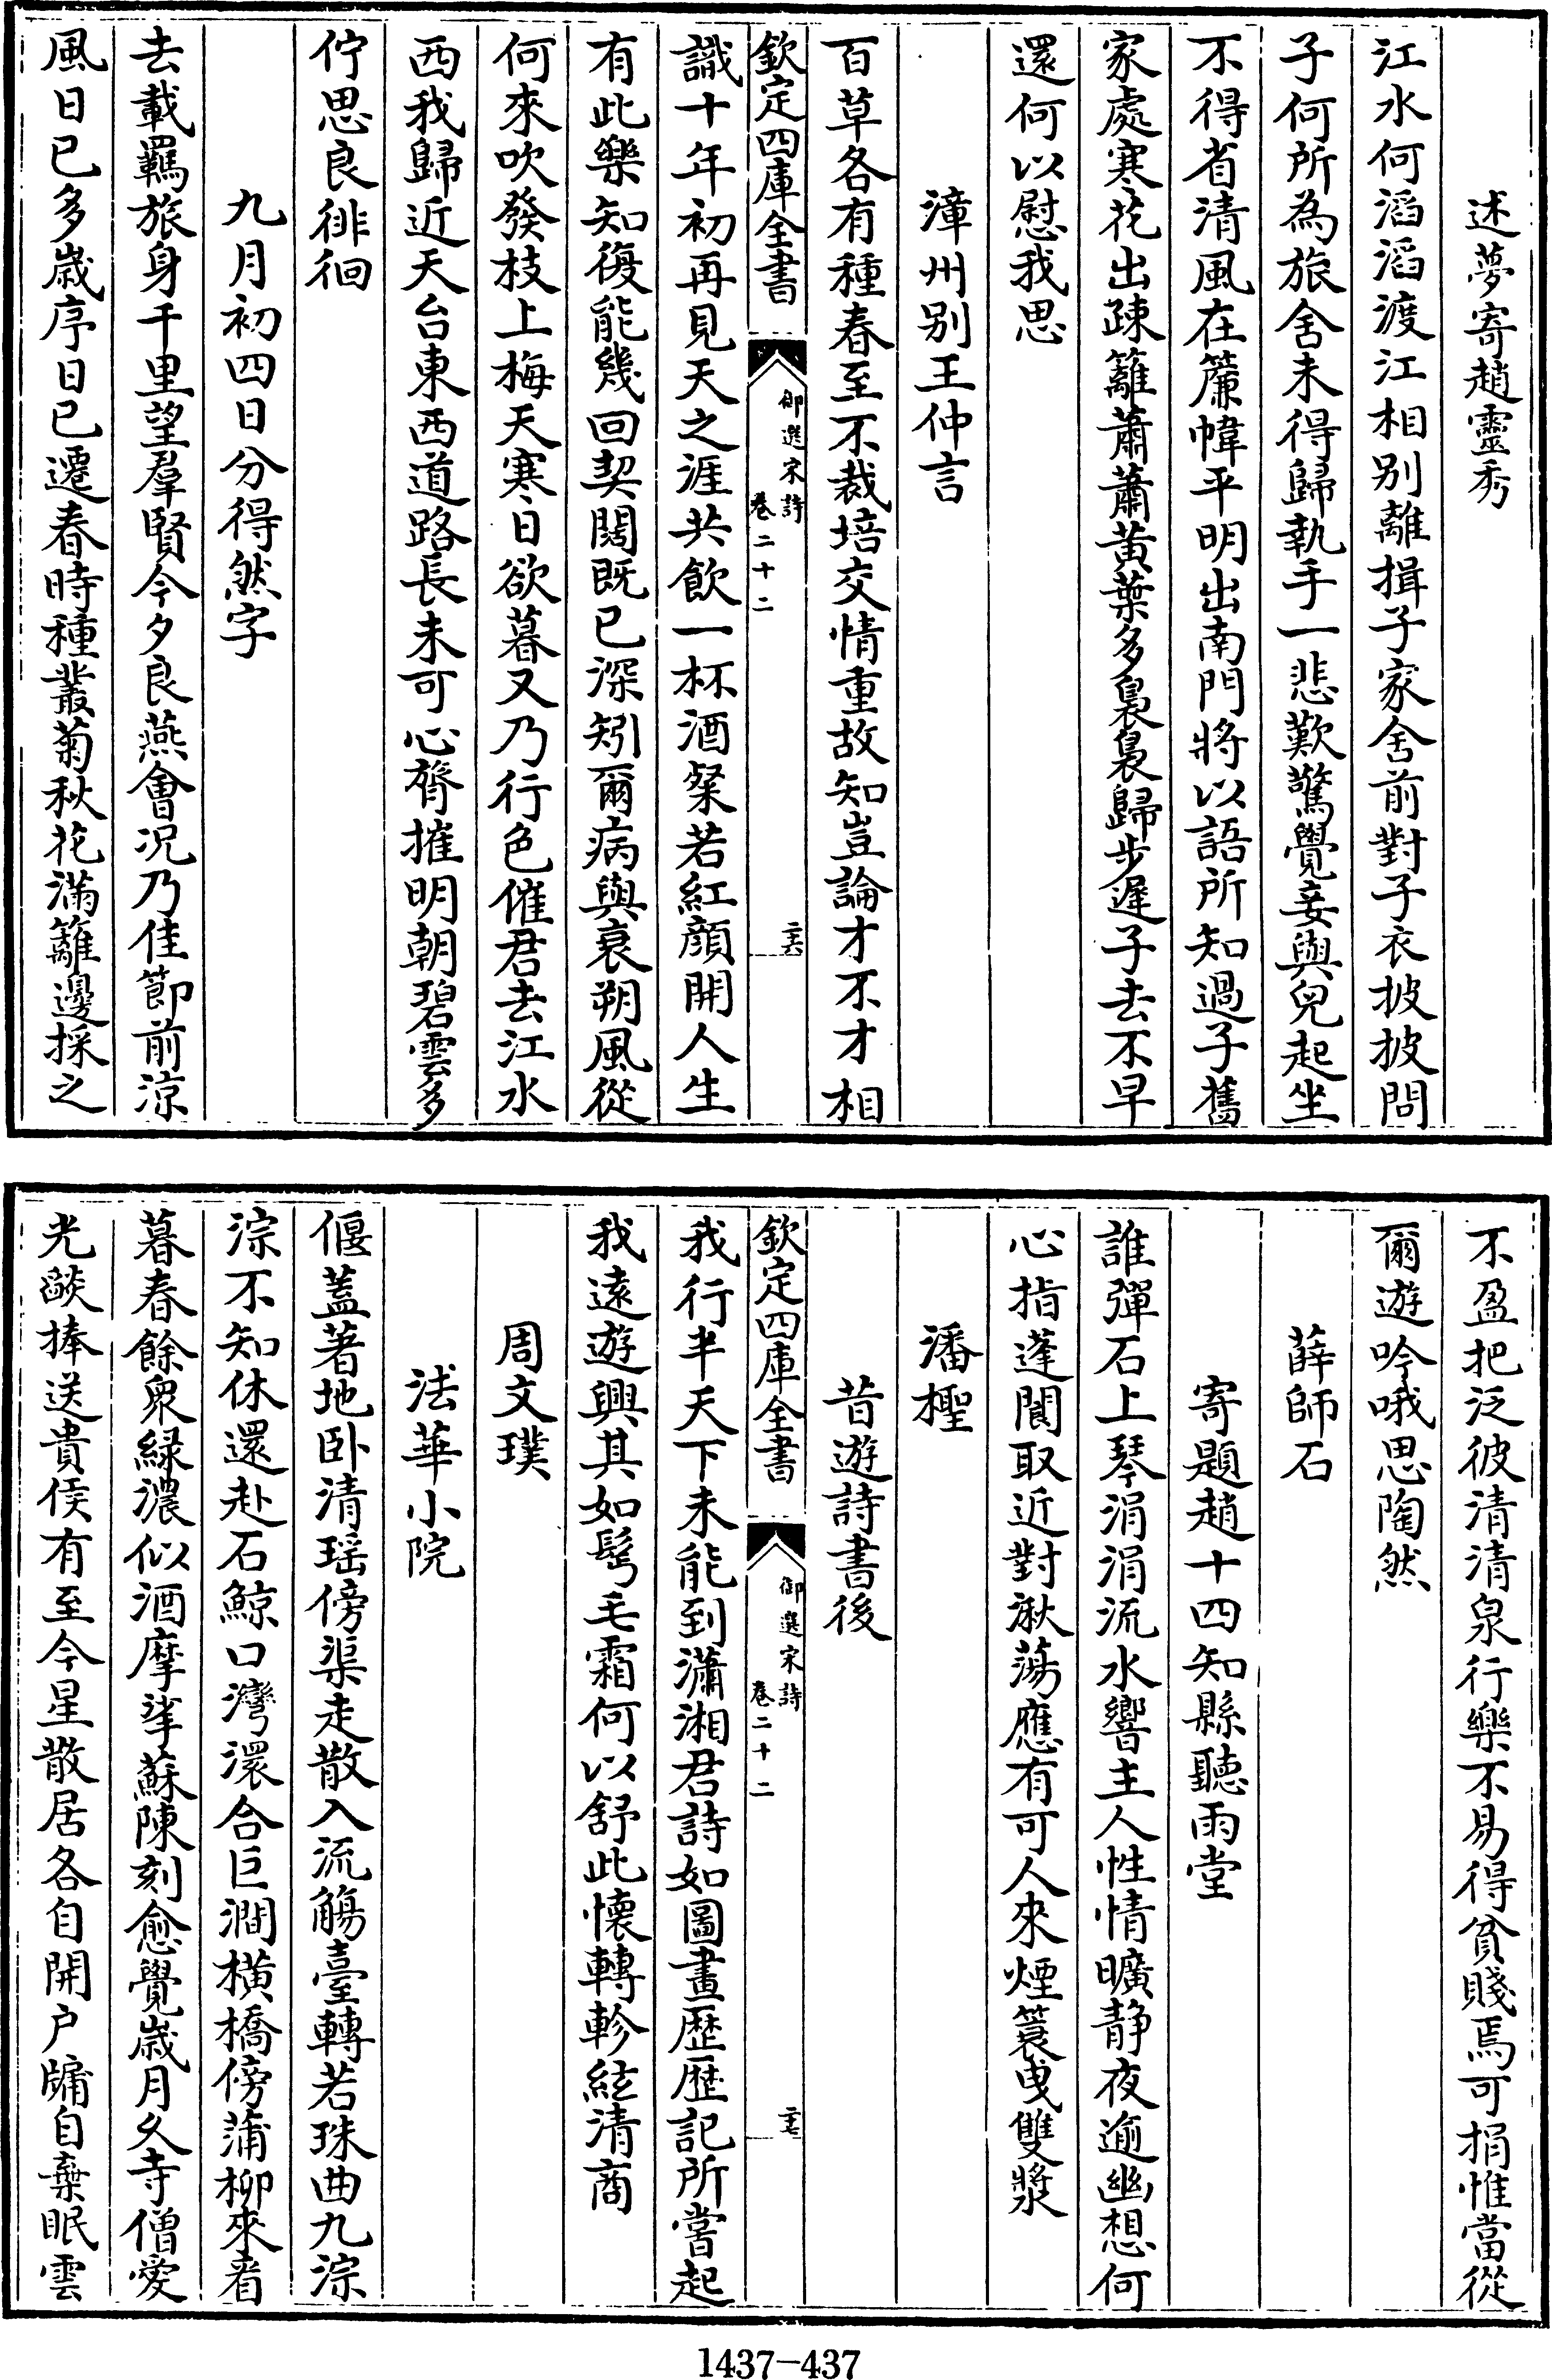 述夢寄趙靈秀
江水何滔滔渡江相别離揖子家舍前對子衣披披問
子何所為旅舍未得歸執手一悲歎驚覺妾與兒起坐
不得省清風在簾幃平明出南門將以語所知過子舊
家處寒花出疎籬蕭蕭黄葉多裊裊歸步遲子去不早
還何以慰我思
漳州别王仲言
百草各有種春至不裁培交情重故知豈論才不才相
欽定四庫全書
御選宋詩
卷二十二
二十六
識十年初再見天之涯共飲一杯酒粲若紅顔開人生
有此樂知復能幾回契闊既已深矧爾病與衰朔風從
何來吹發枝上梅天寒日欲暮又乃行色催君去江水
西我歸近天台東西道路長未可心膂摧明朝碧雲多
佇思良徘徊
九月初四日分得然字
去載羈旅身千里望羣賢今夕良燕會况乃佳節前凉
風日已多歲序日已遷春時種叢菊秋花滿籬邊採之
不盈把泛彼清清泉行樂不易得貧賤焉可捐惟當從
爾遊吟哦思陶然
薛師石
寄題趙十四知縣聽雨堂
誰彈石上琴涓涓流水響主人性情曠静夜逾幽想何
心指蓬閬取近對湫蕩應有可人來煙簑曳雙漿
潘檉
昔遊詩書後
欽定四庫全書
御選宋詩
卷二十二
二十七
我行半天下未能到瀟湘君詩如圖畫歷歷記所嘗起
我遠遊興其如髩毛霜何以舒此懷轉軫絃清商
周文璞
法華小院
偃蓋著地卧清瑶傍渠走散入流觴臺轉若珠曲九淙
淙不知休還赴石鯨口灣澴合巨澗橫橋傍蒲柳來看
暮春餘衆緑濃似酒摩挲蘇陳刻愈覺歲月久寺僧愛
光燄捧送貴侯有至今星散居各自開户牖自棄眠雲
1437-437